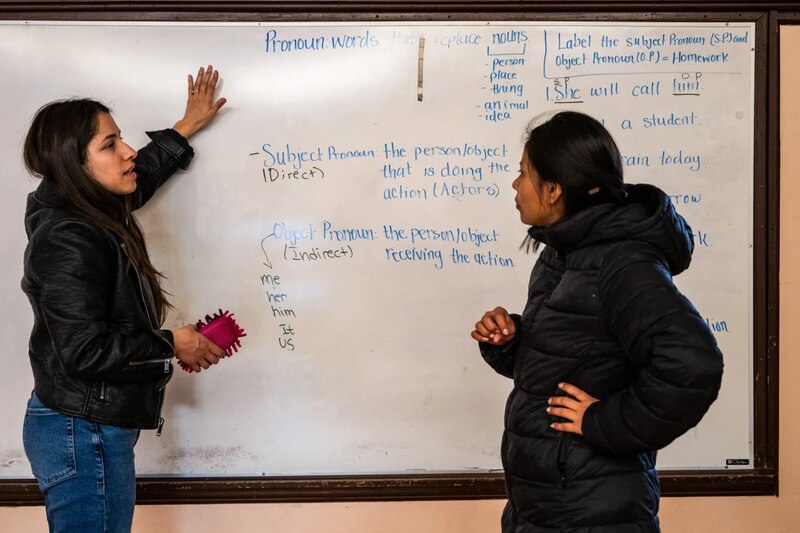 Pronoun: words nouns
person
- place
- thing
- animal
- idea
Label the subject Pronoun (S.P) and
Object Pronoun (O.P.) = Homework
S.P O.P
1. She will call him.
a student.
today.
- Subject Pronoun: the person/object
(Direct) that is doing the
action (Actors)
Object Pronoun: the person/object
(Indirect) receiving the action.
me
her
him
It
us